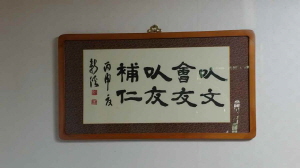 以文
會友
以友
補仁
丙申夏